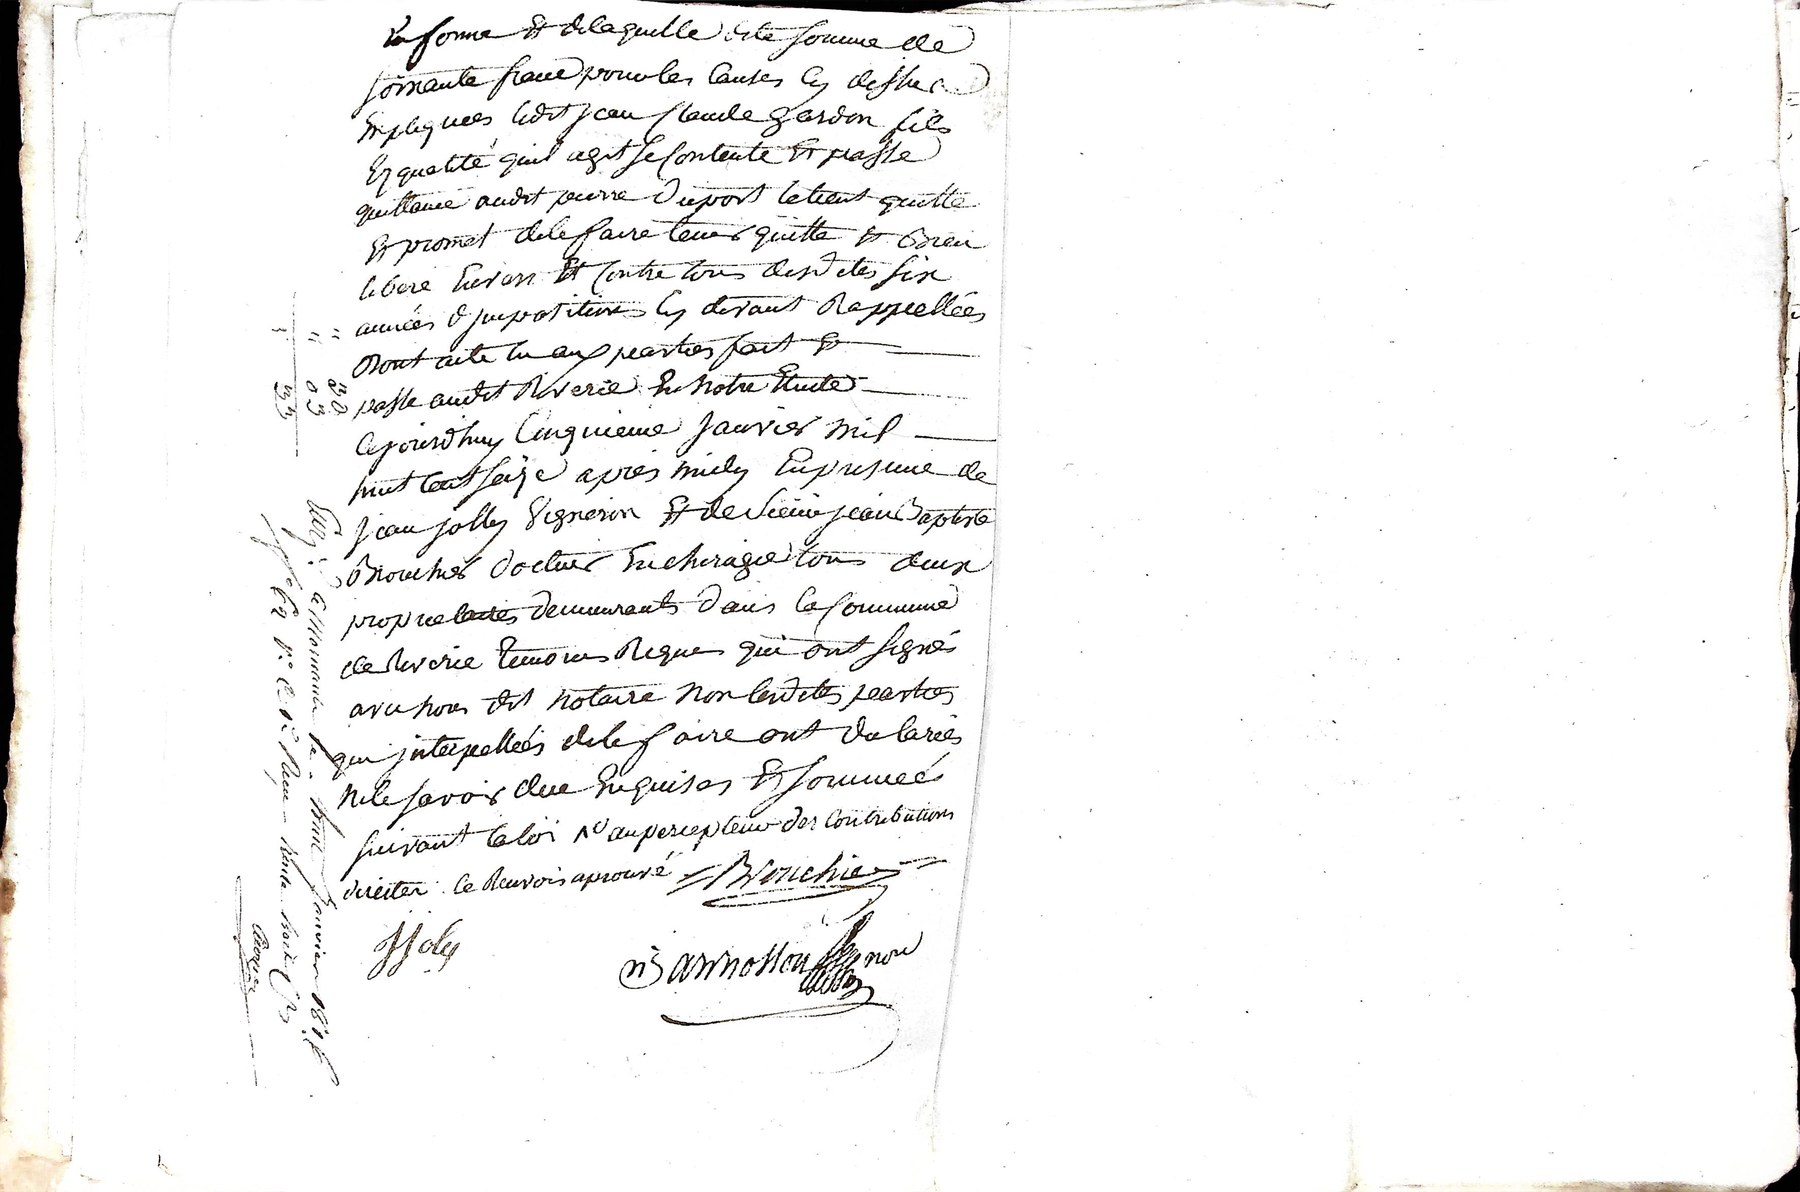 la forme Et delaquelle dite somme de
soixante franc pour les causes cy dessus
Expliquées ledit jean Claude gardon fils
Ez qualité quil agit se Contente Et passe
quittance audit pierre Duport letient quitte
Et promet dele faire tenir quitte Et Bien
libere Envers Et Contre tous desdites six
années d'jmpositions cy devant Rappellées
Dont acte lu aux parties fait Et
passé audit Riverie En Notre Etude
Cejourdhuy Cinquieme janvier mil
huit Cent seize après midy En presence de
jean jolly Vigneron Et de Sieur jean Baptiste
Brouchier docteur En chirugie tous deux
proprietaires demeurants dans la Commune
de Riverie temoins Requis qui ont signés
avec nous dit Notaire Non lesdites parties
qui jnterpellées dele faire ont déclarées
Ne le savoir de ce Enquises Et sommées
suivant la loi au percepteur des Contributions
directes ce Renvois aprouvé Brouchier
JJoly
janvier 1816
30
03
33